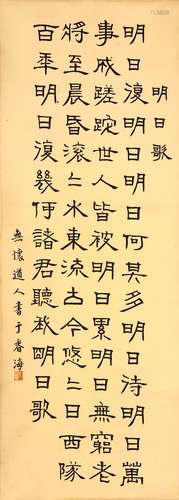 明日歌
明日復明日明日何其多明日待明日萬
事成蹉跎世人皆被明日累明日無窮老
將至晨昏滾〻水東流古今悠〻日西隊
百年明日復幾何諸君聽我明日歌
無懷道人書于香海